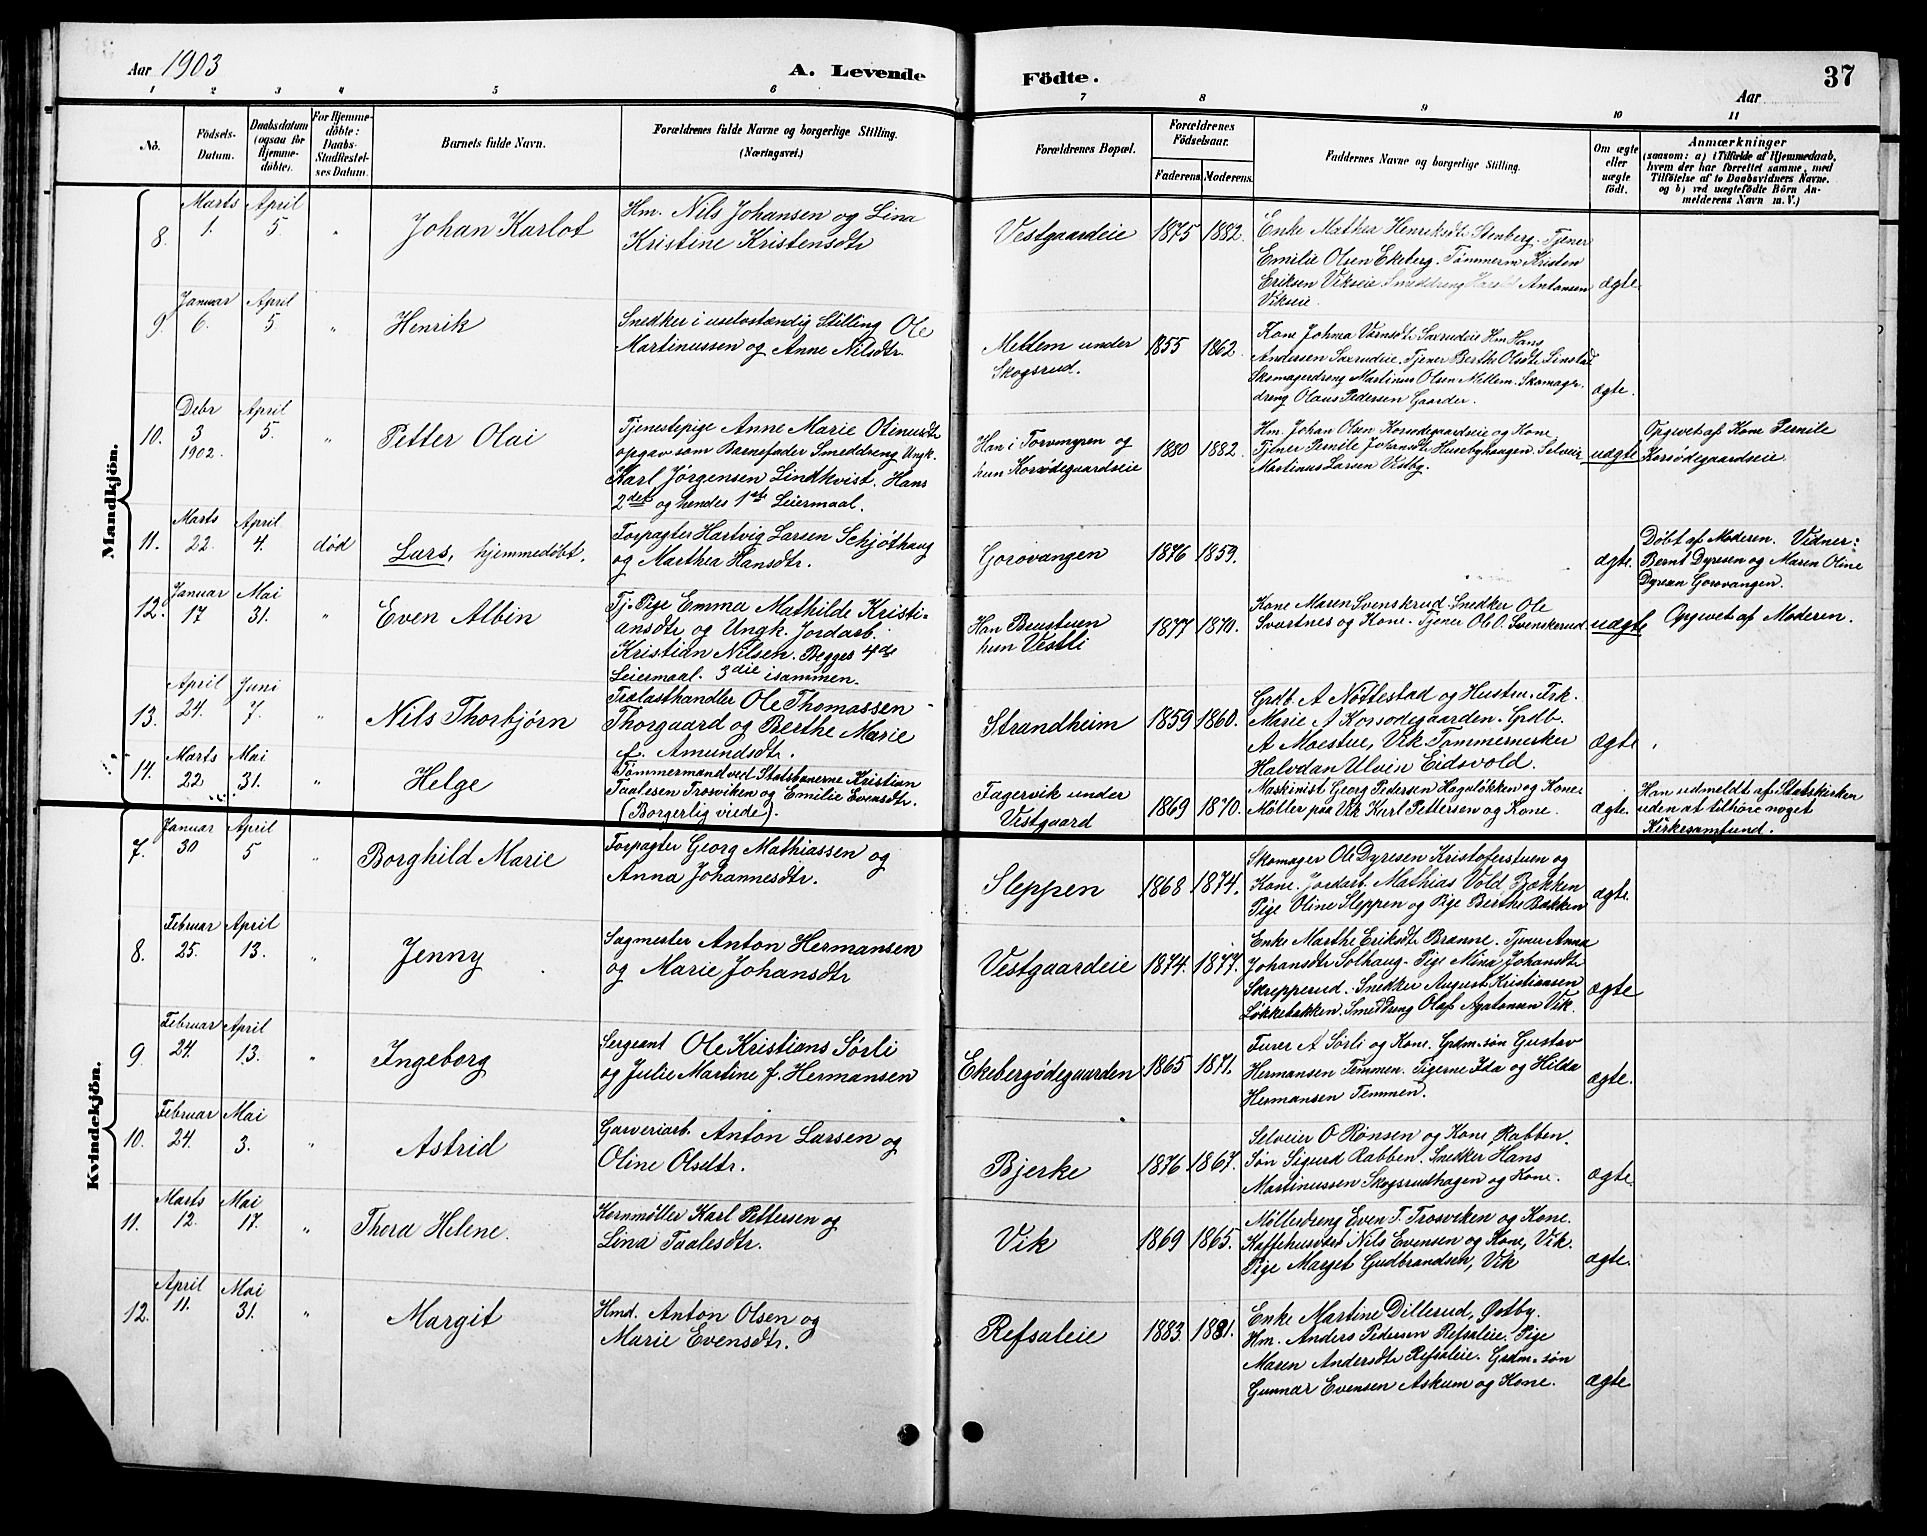 Aar 1903
A. Levende
Födte.
Aar
37
1 2 3 4 5 6 7 8 9 10 11
No.
Födsels-
Datum.
Daabsdatum
(ogsaa for
Hjemme-
döbte).
For Hjemme-
döbte:
Daabs-
Stadfæstel-
ses Datum.
Barnets fulde Navn.
Forældrenes fulde Navne og borgerlige Stilling.
(Næringsvei.)
Forældrenes Bopæl.
Forældrenes
Födselsaar.
Faderens. Moderens.
Faddernes Navne og borgerlige Stilling.
Om ægte
eller
uægte
födt.
Anmærkninger
(saasom: a) i Tilfælde af Hjemmedaab,
hvem der har forrettet samme, med
Tilföielse af to Daabsvidners Navne.
og b) ved uægtefödte Börn An-
melderens Navn m. V.)
Mandkjön.
8. Marts 1. April 5. " Johan Karlot
Hm. Nils Johansen og Lina
Kristine Kristensdtr
Vestgaardeie 1875 1882.
Enke Mathea Henriksdtr Stenberg. Tjener
Emilie Olsen Ekeberg. Tømmerm Kristen
Eriksen Vikseie. Smeddreng Harald Antonsen
Vikseie.
ægte.
9. Januar 6. April 5 " Henrik
Snedker i uselvstændig Stilling Ole
Martinussen og Anne Nilsdtr.
Mellem under
Skogsrud.
1855 1862.
Kone Johna Saxrudeie Hm Hans
Andersen Saxrudeie. Tjener Berthe Olsdtr Linstad
Skomagerdreng Martinus Olsen Mellem. Skomager-
dreng Olaus Pedersen Gaarder.
ægte.
10. Debr 3 1902. April 5. " Petter Olai
Tjenestepige Anne Marie Olinusdtr
opgav som Barnefader Smeddreng Ungk.
Karl Jørgensen Lindkvist. Hans
2det og hendes 1ste Leiermaal.
Han i Torvmyren og
hun Korsødegaardseie
1880 1882.
Hm. Johan Olsen Korsødegaardseie og Kone
Tjener Pernille Johansdtr Husebyhaugen. Selveier
Martinus Larsen Vestby.
uægte
Opgivet af Kone Pernile
Korsødegaardseie.
11. Marts 22. April 4. død Lars, hjemmedøbt.
Forpagter Hartvig Larsen Schjøthaug
og Marthea Hansdtr.
Gorovangen 1876 1859.
ægte.
Døbt af Moderen. Vidner:
Bernt Dyresen og Maren Oline
Dyresen Gorovangen.
12. Januar 17 Mai 31. " Even Albin
Tj. Pige Emma Mathilde Kristi-
ansdtr og Ungk. Jordarb.
Kristian Nilsen. Begges 4de
Leiermaal. 3die isammen.
Han Brustuen
hun Vestli
1877 1870.
Kone Maren Svenskrud. Snedker Ole
Svartnes og Kone. Tjener Ole O. Svenskerud
uægte
Opgivet af Moderen.
13. April 24. Juni 7. " Nils Thorbjørn
Trælasthandler Ole Thomassen
Thorgaard og Berthe Marie
f. Amundsdtr.
Strandheim 1859 1860.
Grdb. A Nøttestad og Hustru. Frk.
Marie A Korsødegaarden. Grdb.
A Moestue, Vik. Tømmermerker
Halvdan Ulvin Eidsvold.
Ægte
14. Marts 22 Mai 31. " Helge
Tømmermand ved Statsbanerne Kristian
Taalesen Trosviken og Emilie Evensdtr.
(Borgerlig viede).
Fagervik under
Vestgaard
1869 1870.
Maskinist Georg Pedersen Hageløkken og Kone.
Møller paa Vik Karl Pettersen og Kone.
ægte.
Han udmeldt af Statskirken
uden at tilhøre noget
Kirkesamfund.
Kvindekjön.
7. Januar 30 April 5 " Borghild Marie
Forpagter Georg Mathiassen og
Anna Johannesdtr.
Sleppen 1868 1874.
Skomager Ole Dyresen Kristoferstuen og
Kone. Jordarb. Mathias Vold, Bækken
Pige Oline Sleppen og Pige Berthe Bækken
ægte.
8. Februar 25. April 13. " Jenny
Sagmester Anton Hermansen
og Marie Johansdtr
Vestgaardeie 1874. 1877.
Enke Marthe Eriksdtr Brænne. Tjener Anna
Johansdtr Solhaug. Pige Mina Johansdtr
Skrepperud. Snekker August Kristiansen
Løkkebakken. Smeddreng Olaf Agatonsen Vik.
ægte
9. Februar 24. April 13. " Ingeborg
Sergeant Ole Kristians Sørli
og Julie Martine f. Hermansen
Ekebergødegaarden 1865 1871.
Furer A Sørli og Kone. Grdm.søn Gustav
Hermansen Temmen. Pigerne Ida og Hilda
Hermansen Temmen.
ægte.
10. Februar 24. Mai 3. " Astrid
Garveriarb. Anton Larsen og
Oline Olsdtr.
Bjerke 1876 1867.
Selveier O Rønsen og Kone Rabben.
Søn Sigurd Rabben. Snedker Hans
Martinussen Skogsrudhagen og Kone.
ægte.
11. Marts 12. Mai 17. " Thora Helene.
Kornmøller Karl Pettersen og
Lina Taalesdtr.
Vik 1869 1865.
Møllerdreng Even T. Trosviken og Kone.
Kaffehusvært Nils Evensen og Kone, Vik.
Pige Marget Gudbrandsen, Vik
ægte.
12. April 11. Mai 31. " Margit
Hmd. Anton Olsen og
Marie Evensdtr.
Refsaleie 1883. 1881.
Enke Martine Dillerud, Østby.
Hm. Anders Pedersen Refsaleie. Pige
Maren Andersdtr Refsaleie. Grdm.søn
Gunnar Evensen Askum og Kone.
ægte